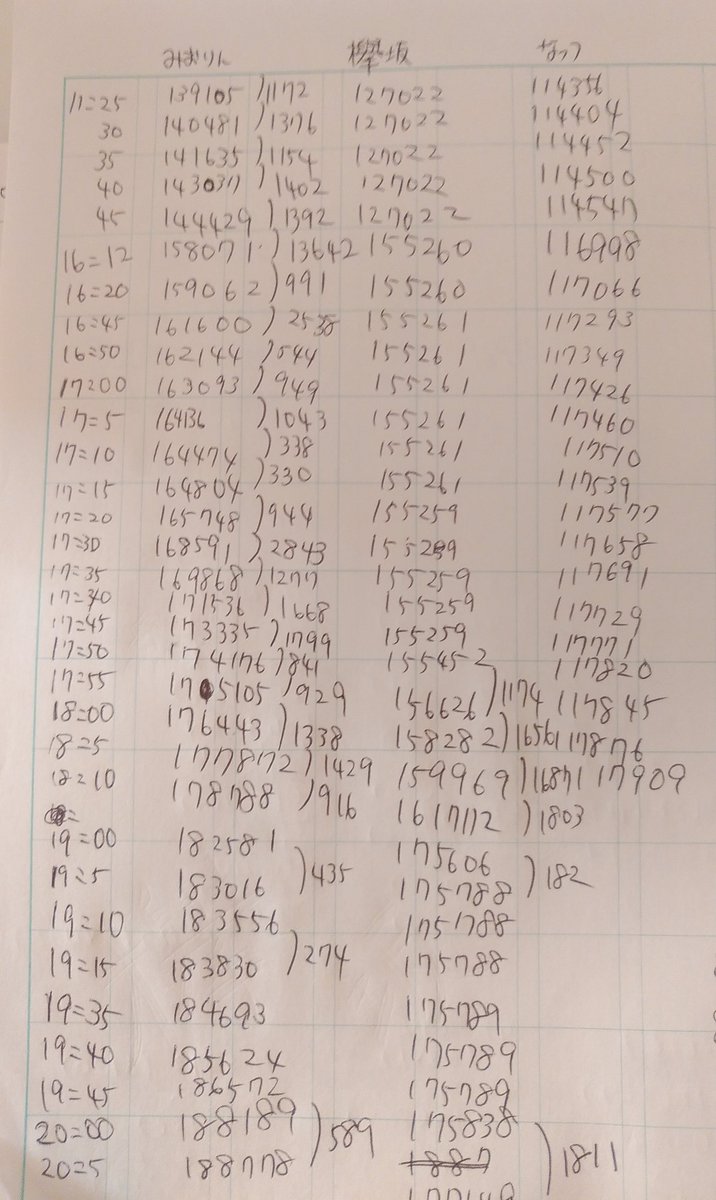 みおりん 欅坂 なっつ
11=25 139105 )1172 127022 114356
30 140481 )1376 127022 114404
35 141635 )1154 127022 114452
40 143037 )1402 127022 114500
45 144429 )1392 127022 114547
16=12 158071 )13642 155260 116998
16=20 159062 )991 155260 117066
16=45 161600 )2538 155261 117293
16=50 162144 )544 155261 117349
17=00 163093 )949 155261 117426
17=5 164136 )1043 155261 117460
17=10 164474 )338 155261 117510
17=15 164804 )330 155261 117539
17=20 165748 )944 155259 117577
17=30 168591 )2843 155259 117658
17=35 169868 )1277 155259 117691
17=40 171536 )1668 155259 117729
17=45 173335 )1799 155259 117771
17=50 174176 )841 155452 117820
17=55 175105 )929 156626 )1174 117845
18=00 176443 )1338 158282 )1656 117876
18=5 177872 )1429 159969 )1687 117909
18=10 178788 )916 161772 )1803
19=00 182581 175606
19=5 183016 )435 175788 )182
19=10 183556 175788
19=15 183830 )274 175788
19=35 184693 175789
19=40 185624 175789
19=45 186572 175789
20=00 188189 175838
20=5 188778 )589 )1811